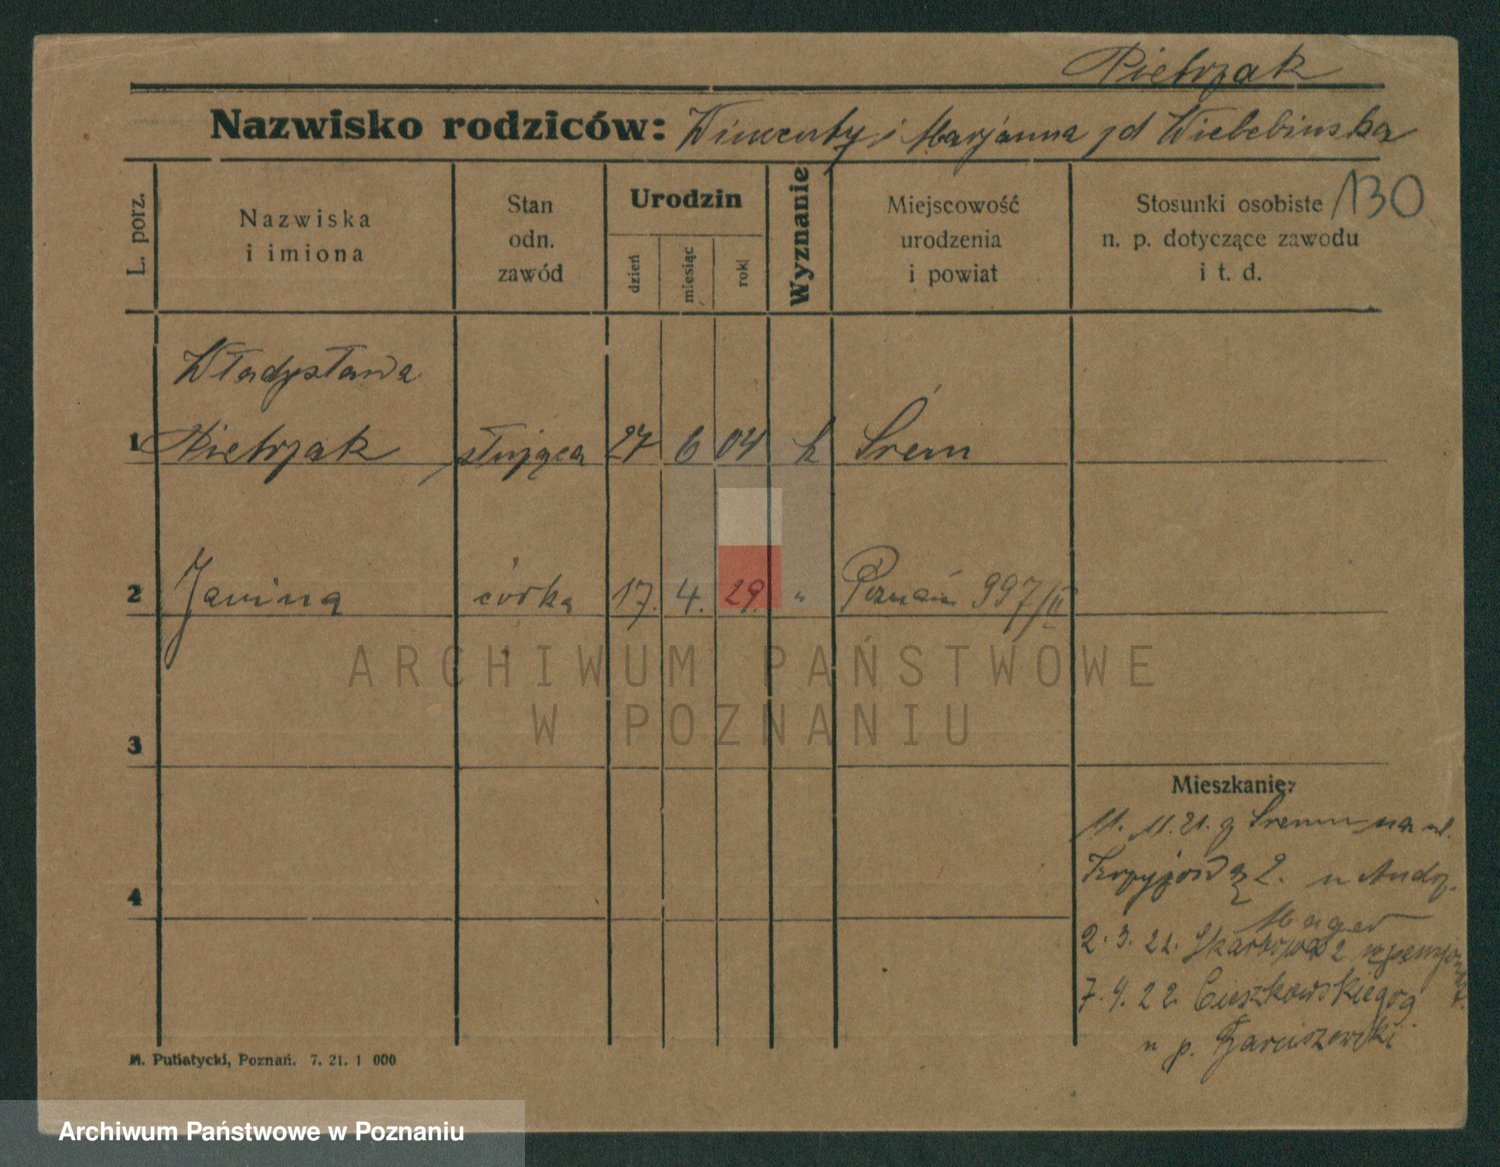 Pietrzak
Nazwisko rodziców: Wincenty i Marjanna zd
L. porz.
Nazwiska
i imiona
Stan
odn.
zawód
Urodzin
dzień
miesiąc
rok
Wyznanie
Miejscowość
urodzenia
i powiat
Stosunki osobiste
n. p. dotyczące zawodu
i t. d.
130
Władysława
1 Pietrzak służąca 27 6 04 k Śrem
2 Janina córka 17. 4. 29. " Poznań 997/II
ARCHIWUM PAŃSTWOWE
W POZNANIU
3
Mieszkanie:
11. 11. 21. z Śremu na ul.
2. u Andrz.
4
Mager
2. 3. 22. Skarbowa 2
7. 9. 22. Cieszkowskiego 9
u p.
M. Putiatycki, Poznań. 7. 21. 1 000
Archiwum Państwowe w Poznaniu